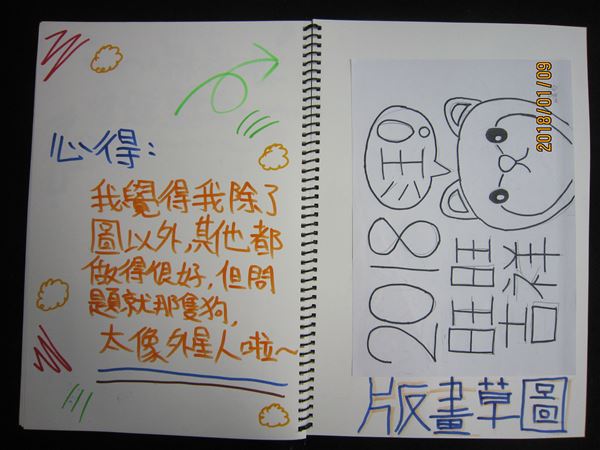 心得:
我覺得我除了
圖以外,其他都
做得很好,但問
題就那隻狗,
太像外星人啦~
2018
旺旺
吉祥
汪!
版畫草圖
2018/01/09